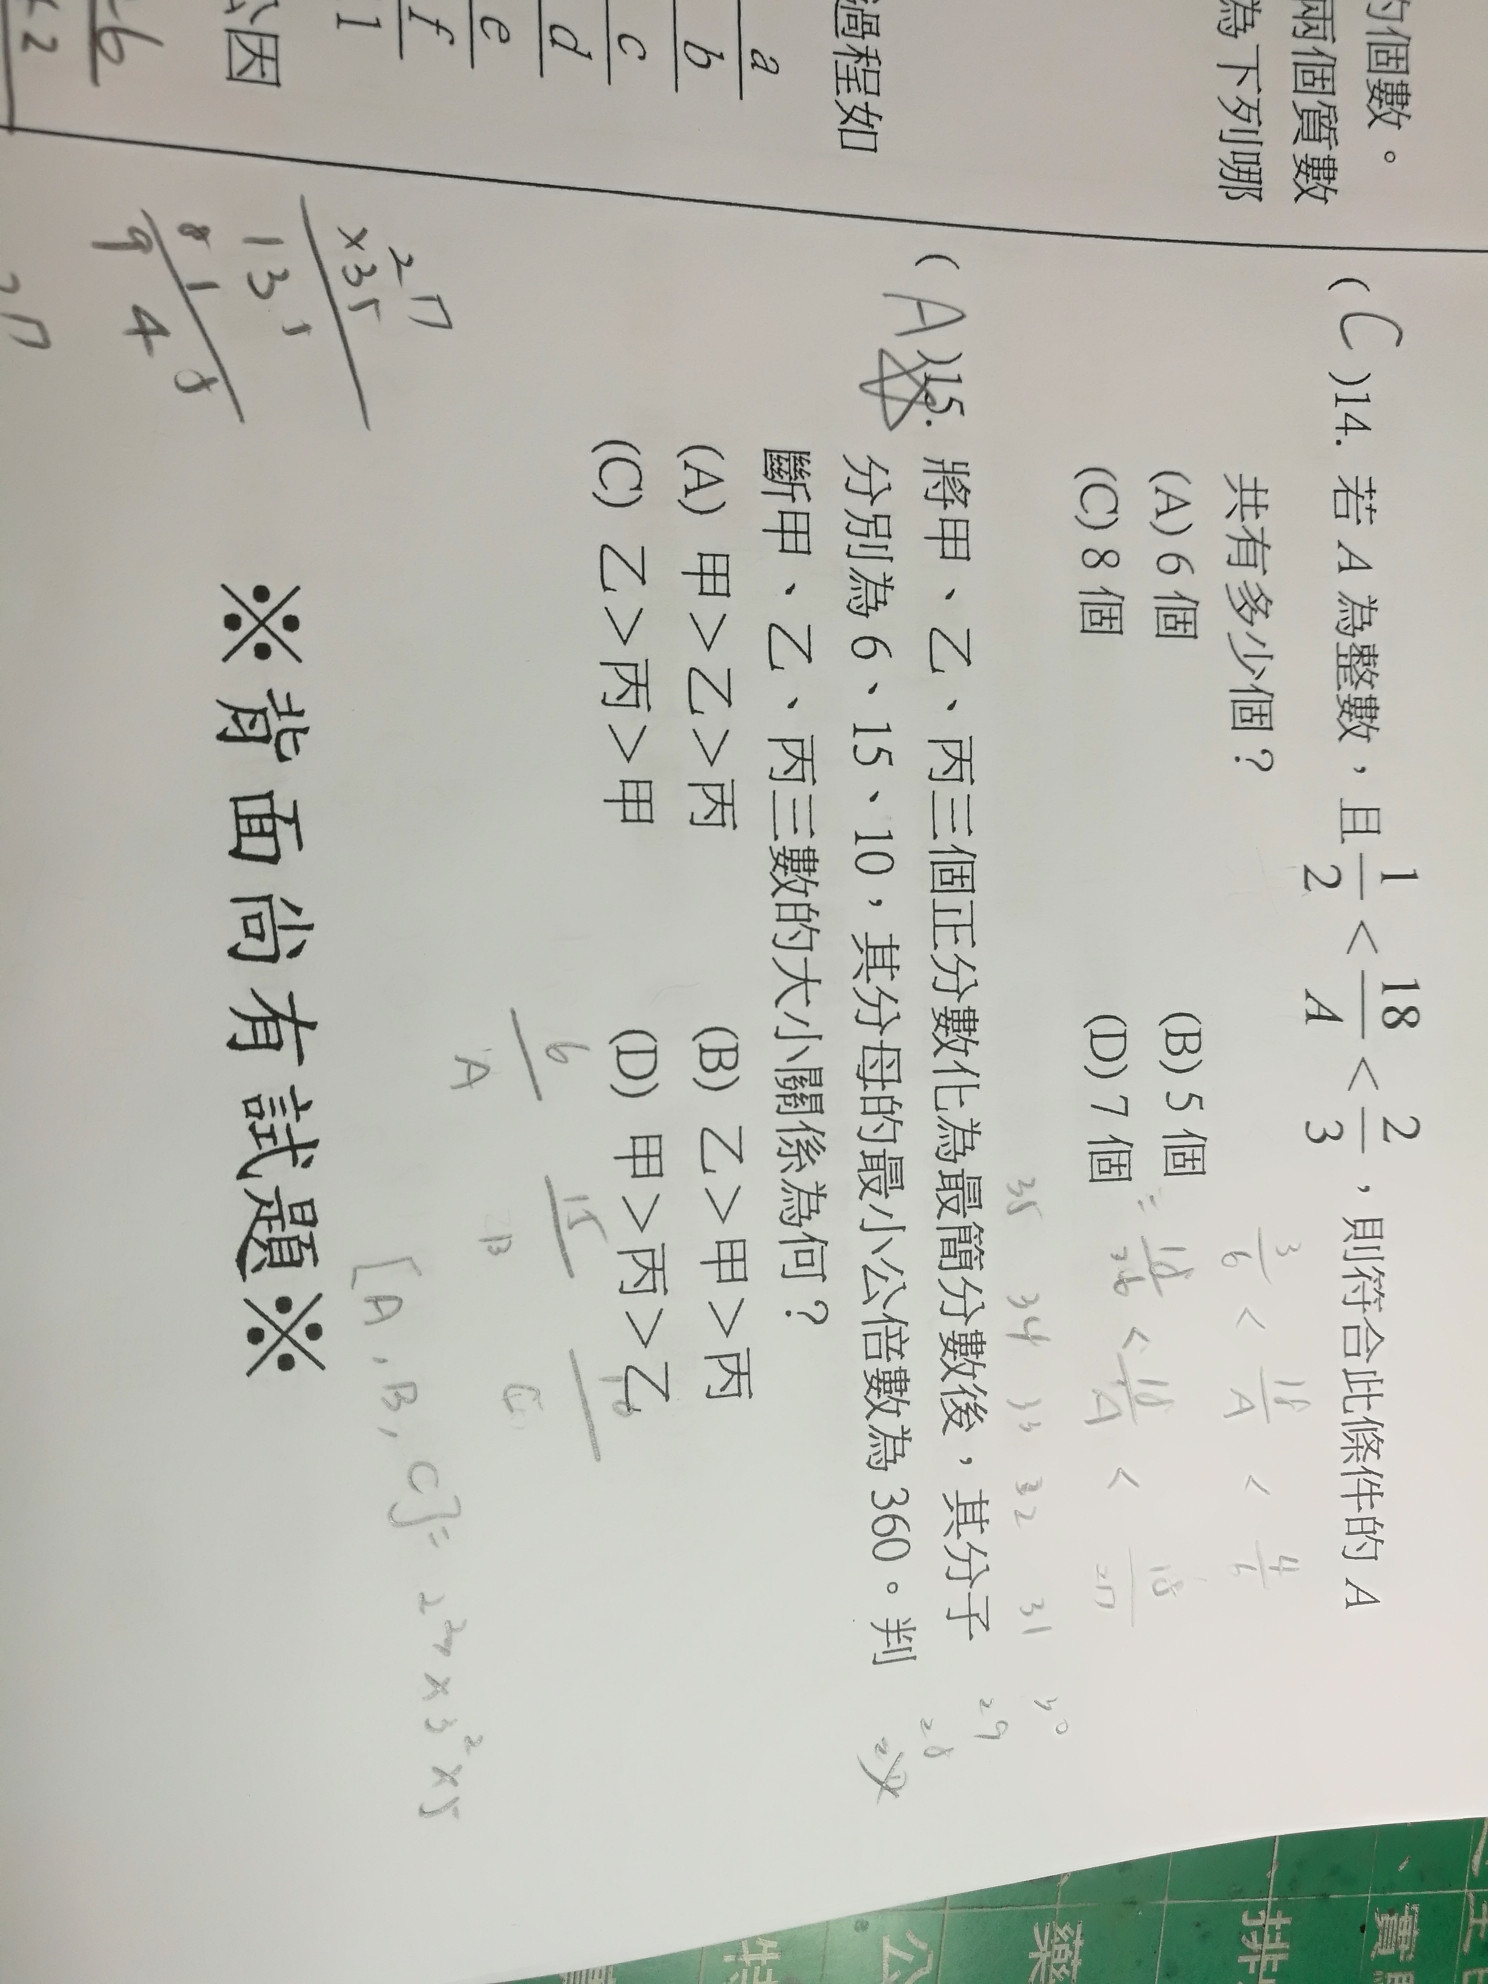 的個數。
兩個質數
為下列哪
過程如
a
b
c
d
e
f
1
公因
( C )14. 若 A 為整數，且 1/2 < 18/A < 2/3，則符合此條件的 A
共有多少個？
(A) 6 個 (B) 5 個
(C) 8 個 (D) 7 個
3/6 < 18/A < 4/6
= 18/36 < 18/A < 18/27
35 34 33 32 31 30
29
28
( A )15. 將甲、乙、丙三個正分數化為最簡分數後，其分子
分別為 6、15、10，其分母的最小公倍數為 360。判
斷甲、乙、丙三數的大小關係為何？
(A) 甲＞乙＞丙 (B) 乙＞甲＞丙
(C) 乙＞丙＞甲 (D) 甲＞丙＞乙
6/A 15/B 10/C
[A, B, C] = 2³ × 3² × 5
27
×35
135
81
945
※背面尚有試題※